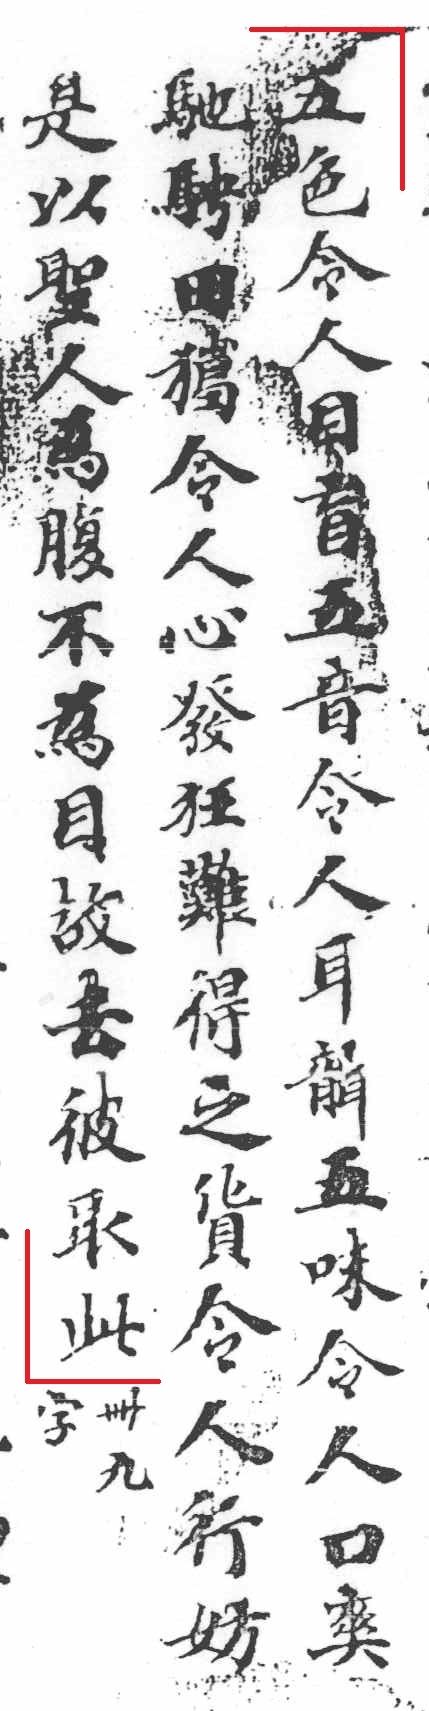 五色令人目盲五音令人耳聾五味令人口爽
馳騁田獵令人心發狂難得之貨令人行妨
是以聖人為腹不為目故去彼取此
卌九
字